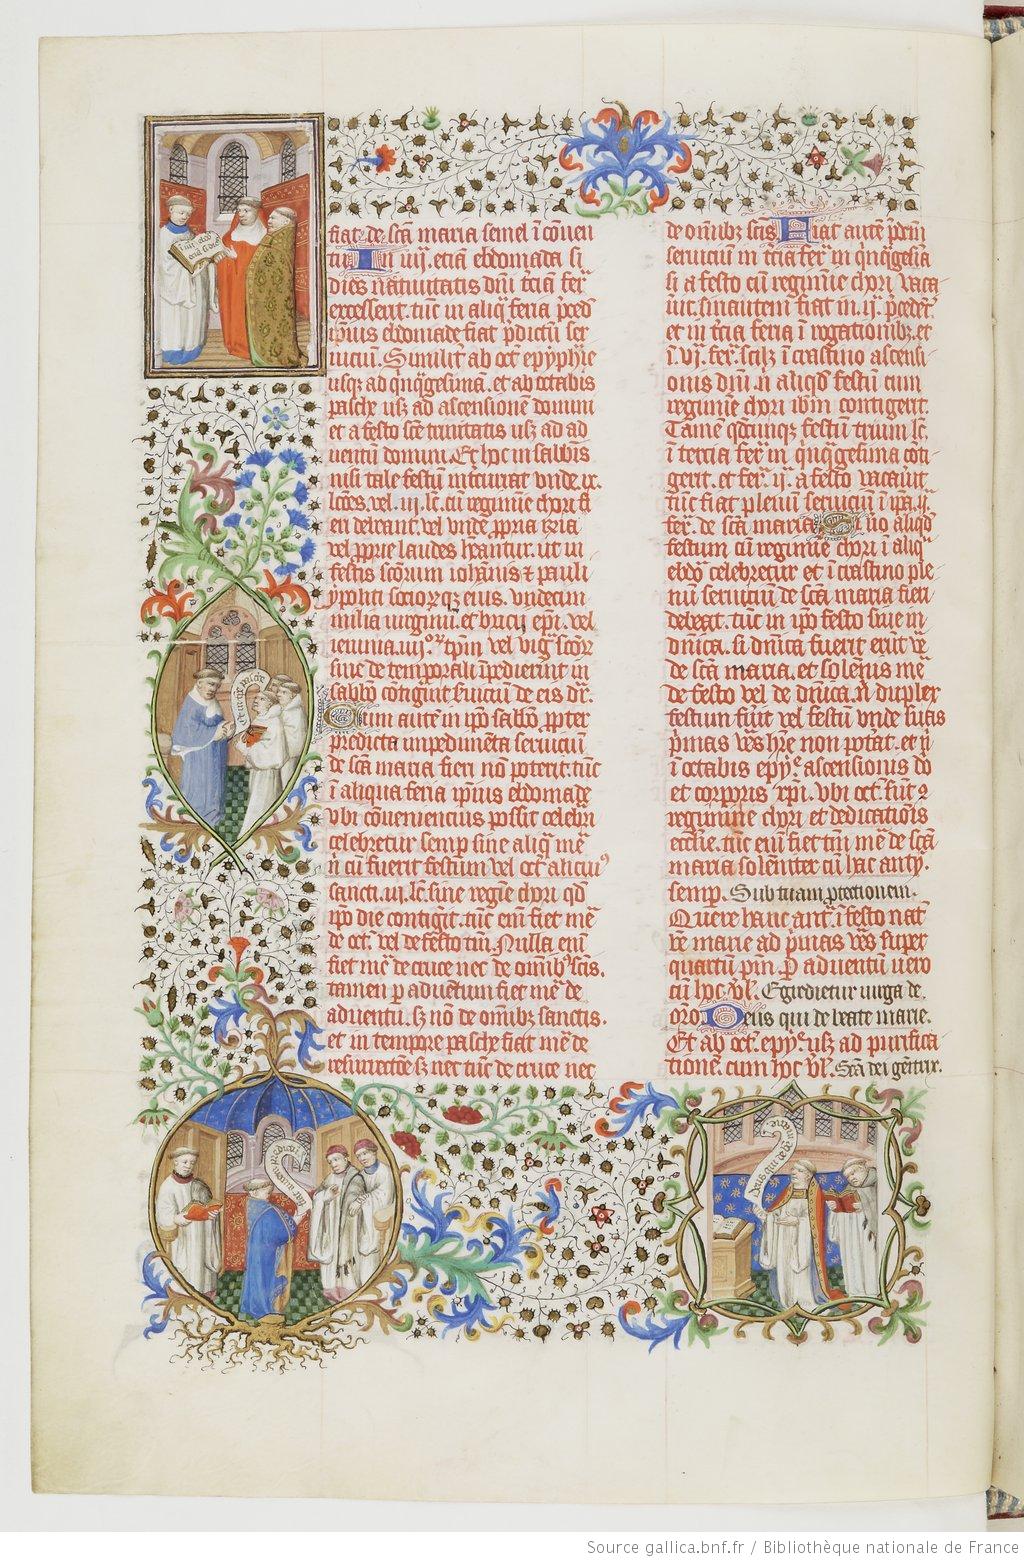 fiat de scã maria semel ĩ cõuen
tu In iiij. etiã ebdomada si
dies natiuitatis dñi tcia fer
excesserit. tũc in aliq feria pced
ipius ebdomade fiat pdictũ ser
uiciũ. Similit ab oct epyphie
usq ad qnqgesimã. et ab octabis
pasche usq ad ascensionẽ domini
et a festo scẽ trinitatis usq ad ad
uentũ domini. Et hoc in sabbis
nisi tale festũ itcurrat unde ix.
lcões. vel .iii. lc. cũ regimine chori fi
eri debeant. vel unde ppria
vel pprie laudes heantur. ut in
festis scõrum iohãnis & pauli
ypoliti sociorq eius. vndecim
milia uirginũ. et bricij epi. vel
ieiunia. iiij. tpm vel vig scõr
siue de temporali ipedierint in
sabbo cõtigerit seruiciũ de eis dr.
Cum autẽ in ipo sabbo ppter
predicta impedimẽta seruiciũ
de scã maria fieri nõ poterit. tũc
ĩ aliqua feria ipius ebdomade
vbi conuenientius possit celebri
celebretur semp sine aliq me
n cũ fuerit festum vel oct alicui9
sancti. iii. lc. sine regie chori qd
ipo die contigit. tũc eni fiet me
de oct. vel de festo tm. Nulla eni
fiet me de cruce nec de omib9 scis.
tamen p aduẽtum fiet me de
aduentu. sz nõ de omibz sanctis.
et in tempore pasche fiat me de
resurrectõe sz nec tũc de cruce nec
de omibz scis Fiat autẽ pdcm
seruiciũ in tcia fer in qnqgesia
si a festo cũ regimie chori uaca
uit. sinautem fiat in .ij. pcedet
et in tcia feria ĩ rogationibz. et
ĩ .vi. fer. scilz ĩ crastino ascensi
onis dñi. n aliqd festũ cum
regimie chori ibm contigerit.
Tamẽ qdcunqz festũ trium lc.
ĩ tercia fer in qnqgesima cõti
gerit. et fer. ij. a festo vacauit.
tũc fiat plenũ seruiciũ ĩ ipa .ij.
fer. de scã maria Quo aliqd
festum cũ regimie chori ĩ aliq
ebda celebretur et ĩ crastino ple
nũ seruiciũ de scã maria fieri
debeat. tũc in ipo festo siue in
dnica. si dnica fuerit erit
de scã maria. et solenis me
de festo vel de dnica. n duplex
festum fuit vel festũ unde
pmas ves hre non potat. et n
ĩ octabis epy ascensionis do
et corporis xpi. vbi oct. sũt
regimine chori et dedicatiois
ecclie. tũc eni fiet tm me de scã
maria solenniter cũ hac anty.
semp. Sub tuam ptectionem.
Quere hanc ant. ĩ festo nat
marie ad pmas ves super
quartũ pm. P aduentũ uero
cũ hoc vl. Egredietur uirga de.
oro Deus qui de beate marie.
Et ab oct. epy usqz ad purifica
tione. cum hoc vl. Scã dei genitrix.
Source gallica.bnf.fr / Bibliothèque nationale de France